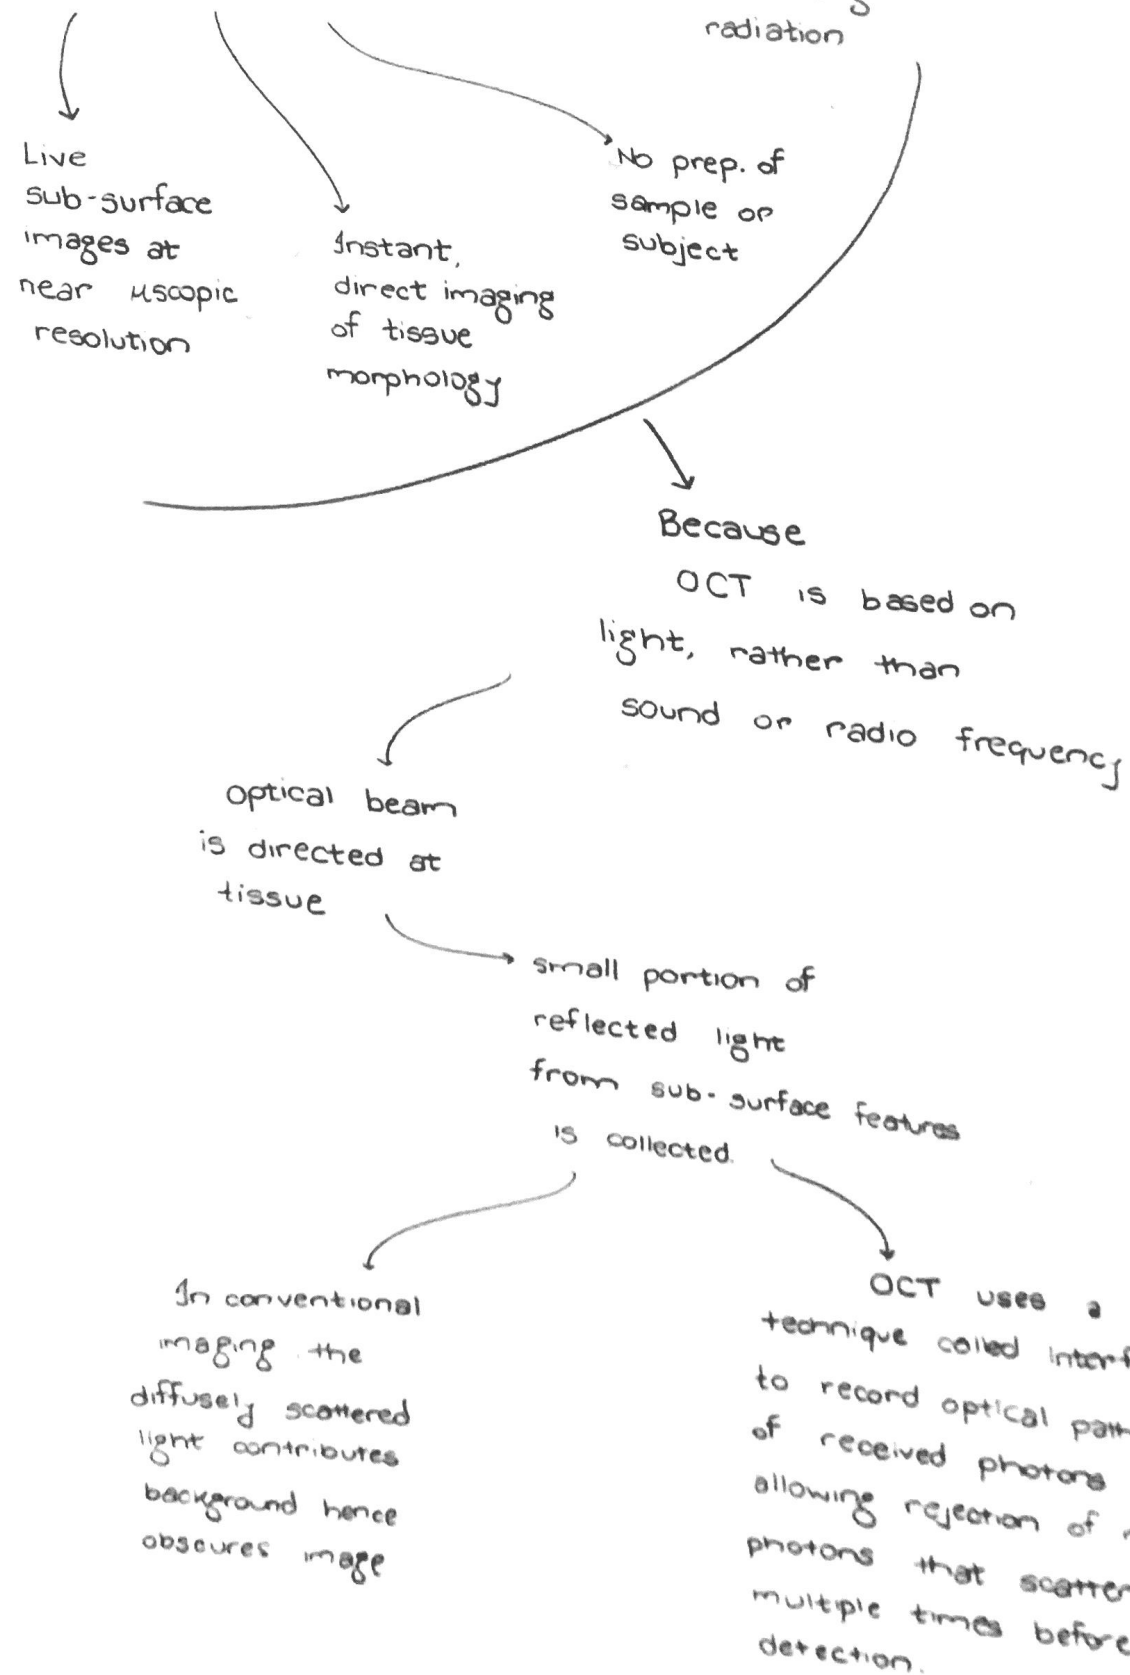 radiation
Live
sub-surface
images at
near μscopic
resolution
Instant,
direct imaging
of tissue
morphology
No prep. of
sample or
subject
Because
OCT is based on
light, rather than
sound or radio frequency
optical beam
is directed at
tissue
small portion of
reflected light
from sub-surface features
is collected.
In conventional
imaging the
diffusely scattered
light contributes
background hence
obscures image
OCT uses a
technique called
to record optical
of received photons
allowing rejection of
photons that
multiple times before
detection.